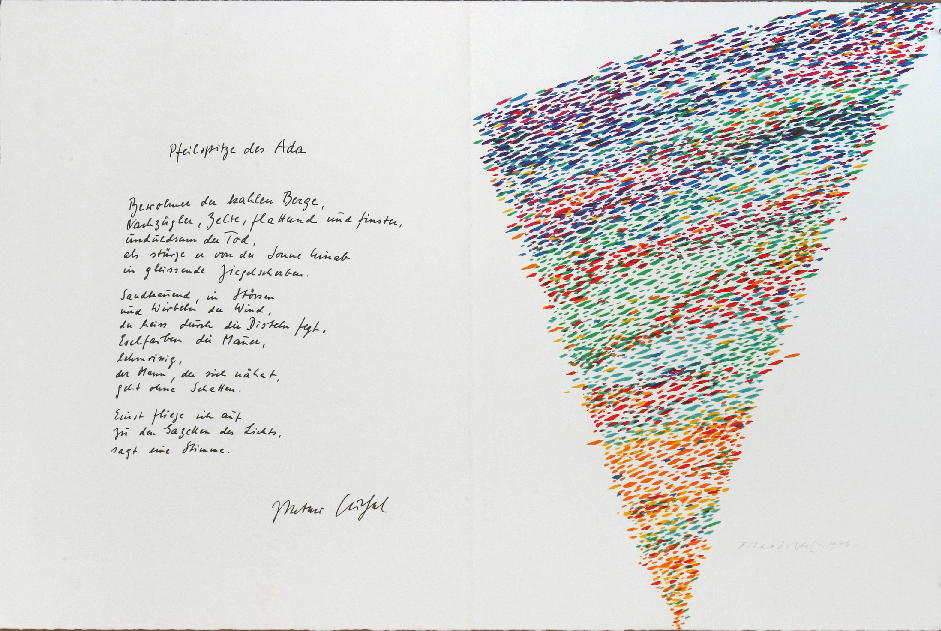 Pfeilspitze des Ada
Bewohner der kahlen Berge,
Nachzügler, Zelte, flatternd und finster,
unduldsam der Tod,
als stürze er von der Sonne hinab
in gleissende Ziegelscherben.
Sandkauend, in Stössen
und Wirbeln der Wind,
der heiss durch die Disteln fegt.
Eselfarben die Mauer,
lehmrissig,
der Mann, der sich nähert,
geht ohne Schatten.
Einst fliege ich auf
zu den Gazellen des Lichts,
sagt eine Stimme.
Peter Huchel